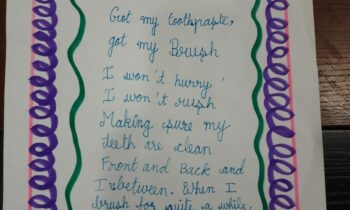 Got my toothpaste,
got my Brush
I won't hurry'
I won't rush
Making sure my
teeth are clean
Front and Back and
Inbetween. When I
brush for quite a while,